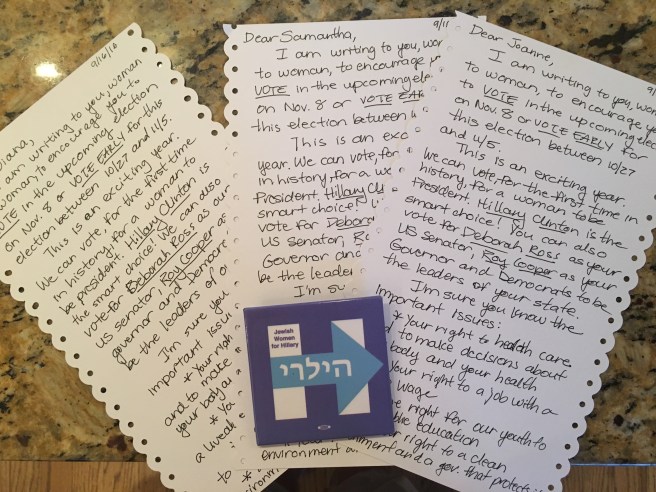 9/16/16
am writing to you, woman
woman to encourage you to
VOTE in the upcoming election
on Nov. 8 or VOTE EARLY for this
election between 10/27 and 11/5.
This is an exciting year.
We can vote, for the first time
in history, for a woman to
be president. Hillary Clinton is
the smart choice! We can also
vote for Deborah Ross as our
US senator, Roy Cooper as
governor and Democra
be the leaders of o
I'm sure you
important issu
* Your righ
and to make
your body a
* Yo
a livea
to
9/11
Dear Samantha,
I am writing to you, wo
to woman, to encourage y
VOTE in the upcoming ele
on Nov. 8 or VOTE EAR
this election between
This is an exc
year. We can vote, for
in history, for a wo
President. Hillary Cl
smart choice!
vote for Debora
US Senator, R
Governor and
be the leader
I'm su
environment a
Dear Joanne,
9/
I am writing to you, wom
to woman, to encourage yo
to VOTE in the upcoming elec
on Nov. 8 or VOTE EARLY for
this election between 10/27
and 11/5.
This is an exciting year.
We can vote, for the first time in
history, for a woman to be
President. Hillary Clinton is the
smart choice! You can also
vote for Deborah Ross as your
US Senator, Roy Cooper as your
Governor and Democrats to be
the leaders of your state.
I'm sure you know the
important issues:
* Your right to health care.
d to make decisions about
body and your health
Your right to a job with a
Wage
e right for our youth to
education
right to a clean
ment and a gov. that protects
Jewish
Women
for Hillary
הילרי